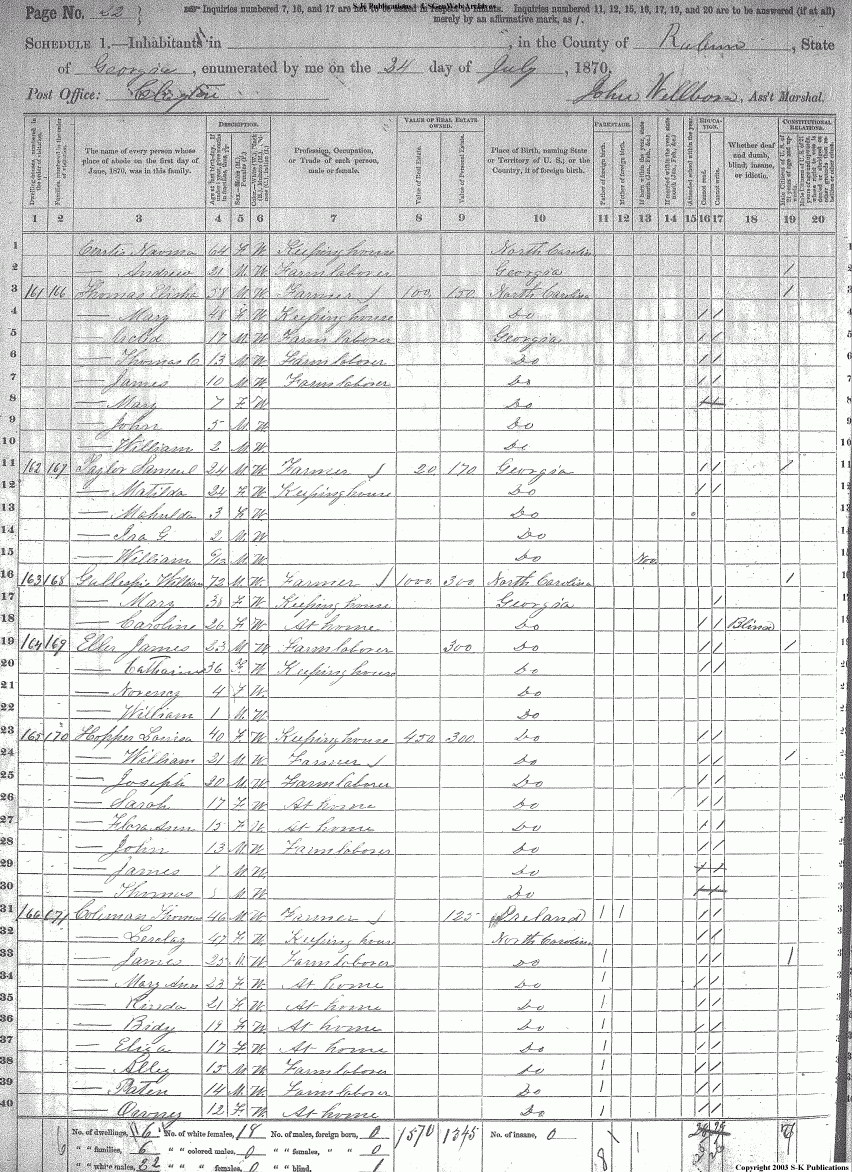 Page No. 22
Inquiries numbered 7, 16, and 17 are not to be asked in respect to infants. Inquiries numbered 11, 12, 15, 16, 17, 19, and 20 are to be answered (if at all)
merely by an affirmative mark, as /.
S-K Publications / USGenWeb Archives
SCHEDULE 1.—Inhabitants in , in the County of Rabun, State
of Georgia, enumerated by me on the 24 day of July, 1870.
Post Office: Clayton John Wellborn, Ass't Marshal.
DESCRIPTION. VALUE OF REAL ESTATE OWNED. PARENTAGE. EDUCATION. CONSTITUTIONAL RELATIONS.
The name of every person whose place of abode on the first day of June, 1870, was in this family.
Profession, Occupation, or Trade of each person, male or female.
Value of Real Estate. Value of Personal Estate.
Place of Birth, naming State or Territory of U. S.; or the Country, if of foreign birth.
Father of foreign birth. Mother of foreign birth.
Attended school within the year. Cannot read. Cannot write.
Whether deaf and dumb, blind, insane, or idiotic.
1 2 3 4 5 6 7 8 9 10 11 12 13 14 15 16 17 18 19 20
1 Curtis Naoma 64 F W Keeping house North Carolina
2 — Andrew 21 M W Farm laborer Georgia /
3 161 166 Thomas Elisha 58 M W Farmer 100 150 North Carolina /
4 — Mary 48 F W Keeping house Do / /
5 — 17 M W Farm laborer Georgia / /
6 — Thomas C 13 M W Farm laborer Do / /
7 — James 10 M W Farm laborer Do / /
8 — Mary 7 F W Do
9 — John 5 M W Do
10 — William 2 M W Do
11 162 167 Taylor Samuel 24 M W Farmer 20 170 Georgia / / /
12 — Matilda 24 F W Keeping house Do / /
13 — Mahulda 3 F W Do
14 — Ira G. 2 M W Do
15 — William M W Do Nov
16 163 168 Gillespie William 72 M W Farmer 1000 300 North Carolina /
17 — Mary 38 F W Keeping house Georgia /
18 — Caroline 26 F W At home Do / / Blind
19 164 169 Eller James 23 M W Farm laborer 300 Do / / /
20 — Catharine 36 F W Keeping house Do / /
21 — 4 F W Do
22 — William 1 M W Do
23 165 170 Hopper Louisa 40 F W Keeping house 450 300 Do / /
24 — William 21 M W Farmer Do / / /
25 — Joseph 20 M W Farm laborer Do / /
26 — Sarah 17 F W At home Do / /
27 — Flora Ann 15 F W At home Do / /
28 — John 13 M W Farm laborer Do / /
29 — James M W Do
30 — Thomas M W Do
31 166 171 Coleman Thomas 46 M W Farmer 125 Ireland / / / /
32 — 47 F W Keeping house North Carolina / /
33 — James 25 M W Farm laborer Do / / / /
34 — Mary Ann 23 F W At home Do / / /
35 — 21 F W At home Do / / /
36 — Bidy 19 F W At home Do / / /
37 — Eliza 17 F W At home Do / / /
38 — Alley 15 M W Farm laborer Do / / /
39 — Paten 14 M W Farm laborer Do / / /
40 — 12 F W At home Do / / /
No. of dwellings, 6 No. of white females, 18 No. of males, foreign born, 0 1570 1345 No. of insane, 0
" " families, 6 " " colored males, 0 " " females, " " 0
" " white males, 22 " " " females, 0 " " blind, 1 8
Copyright 2003 S-K Publications